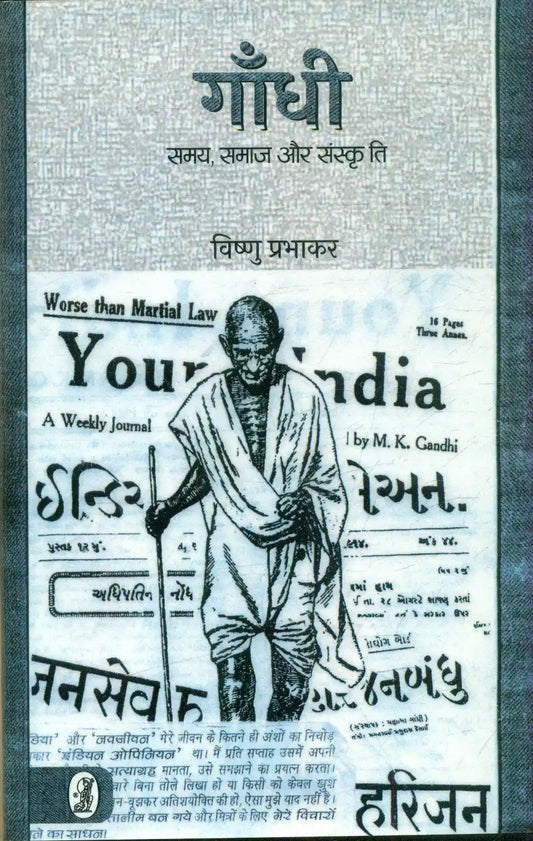 गाँधी
समय, समाज और संस्कृति
विष्णु प्रभाकर
Worse than Martial Law
16 Pages
Three Annas.
Young India
A Weekly Journal
by M. K. Gandhi
ઈન્ડિ
અન.
પુસ્તક ૧૨ મું.
અંક ૪૪.
અધિપતિન નોંધ
जनसेवक
જનબંધુ
डिया' और 'नवजीवन' मेरे जीवन के कितने ही अंशों का निचोड़
कार 'इंडियन ओपिनियन' था। मैं प्रति सप्ताह उसमें अपनी
सत्याग्रह मानता, उसे समझाने का प्रयत्न करता।
बिना तोले लिखा हो या किसी को केवल खुश
न-बूझकर अतिशयोक्ति की हो, ऐसा मुझे याद नहीं है।
तालीम बन गये और मित्रों के लिए मेरे विचारों
का साधन।
હરિજન